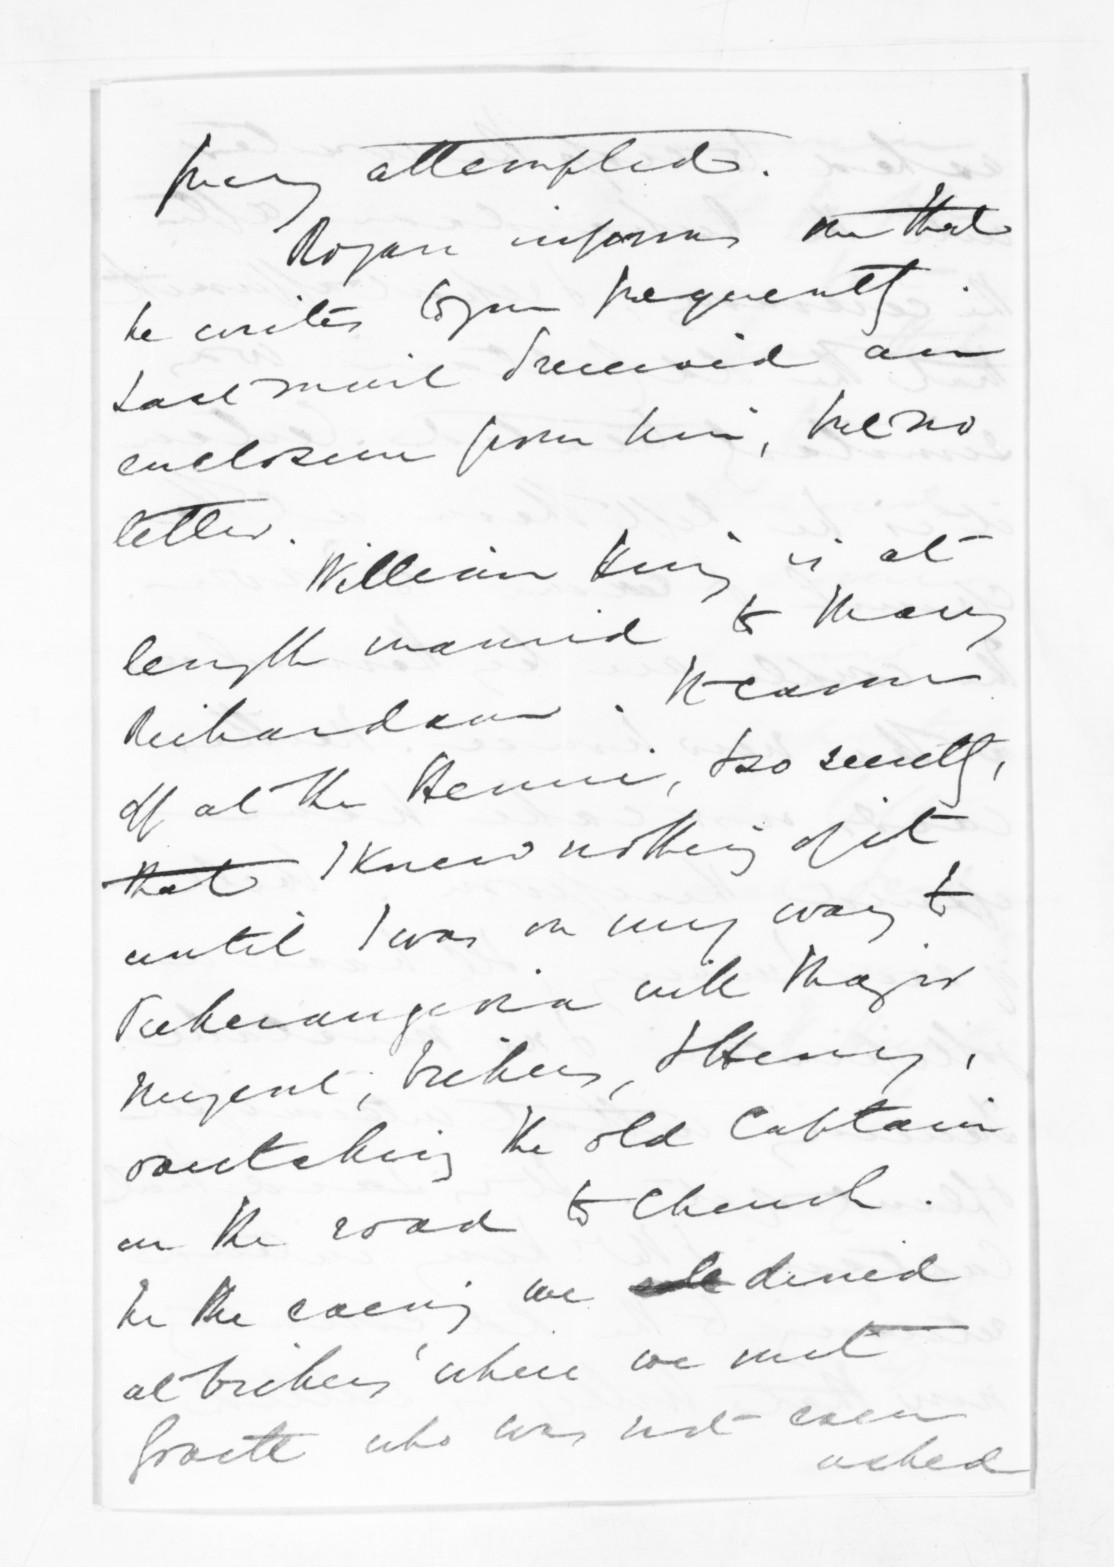 being attempted.
Rogan informs me that
he writes to you frequently.
Last mail I received an
enclosure from him, but no
letter.
William King is at
length married to Mary
Richardson. It came
off at the Henui, & so secretly,
that I knew nothing of it
until I was on my way to
Tataraimaka with Major
Nugent, & Henry,
overtaking the old Captain
on the road to Church.
In the evening we dined
at where we met
who was not even
asked